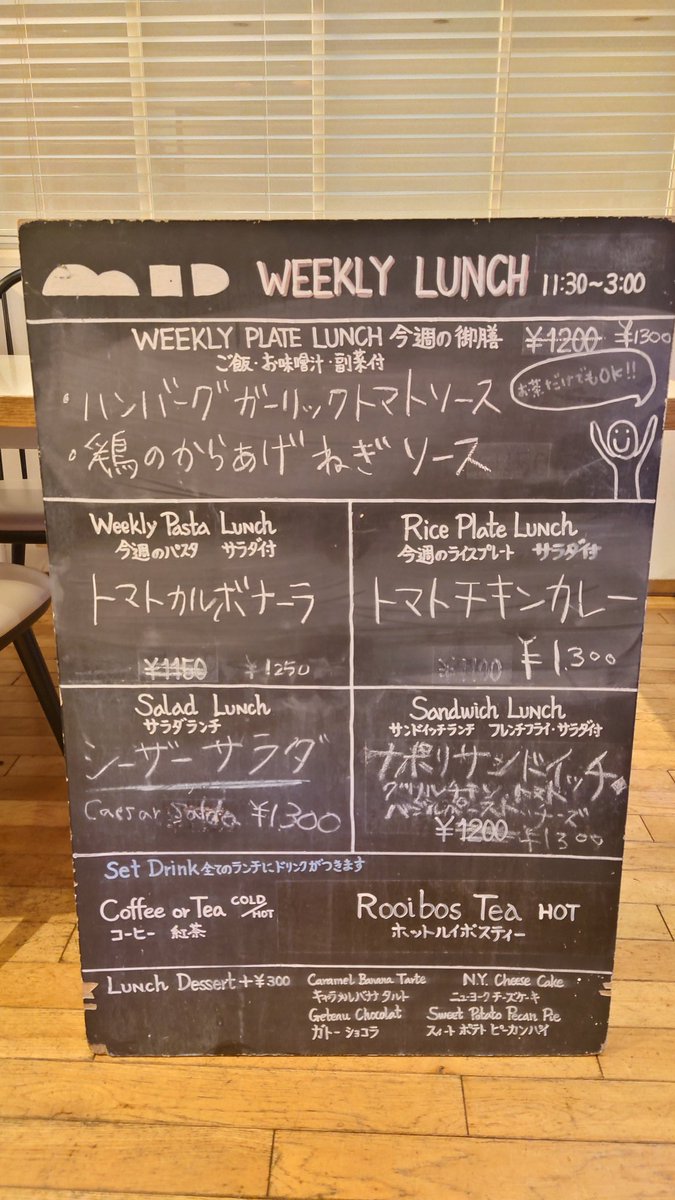 MID WEEKLY LUNCH 11:30~3:00
WEEKLY PLATE LUNCH 今週の御膳 ¥1200 ¥1300
ご飯・お味噌汁・副菜付
お茶だけでもOK!!
・ハンバーグガーリックトマトソース
・鶏のからあげねぎソース
Weekly Pasta Lunch
今週のパスタ サラダ付
トマトカルボナーラ
¥1150 ¥1250
Rice Plate Lunch
今週のライスプレート サラダ付
トマトチキンカレー
¥1300
Salad Lunch
サラダランチ
シーザーサラダ
Caesar ¥1300
Sandwich Lunch
サンドイッチランチ フレンチフライ・サラダ付
ナポリサンドイッチ
グリルチキン トマト
バジルペースト チーズ
¥1200 ¥1300
Set Drink 全てのランチにドリンクがつきます
Coffee or Tea COLD/HOT
コーヒー 紅茶
Rooibos Tea HOT
ホットルイボスティー
Lunch Dessert +¥300
Caramel Banana Tarte
キャラメルバナナタルト
Geteau Chocolat
ガトーショコラ
N.Y. Cheese Cake
ニューヨークチーズケーキ
Sweet Potato Pecan Pie
スィートポテトピーカンパイ